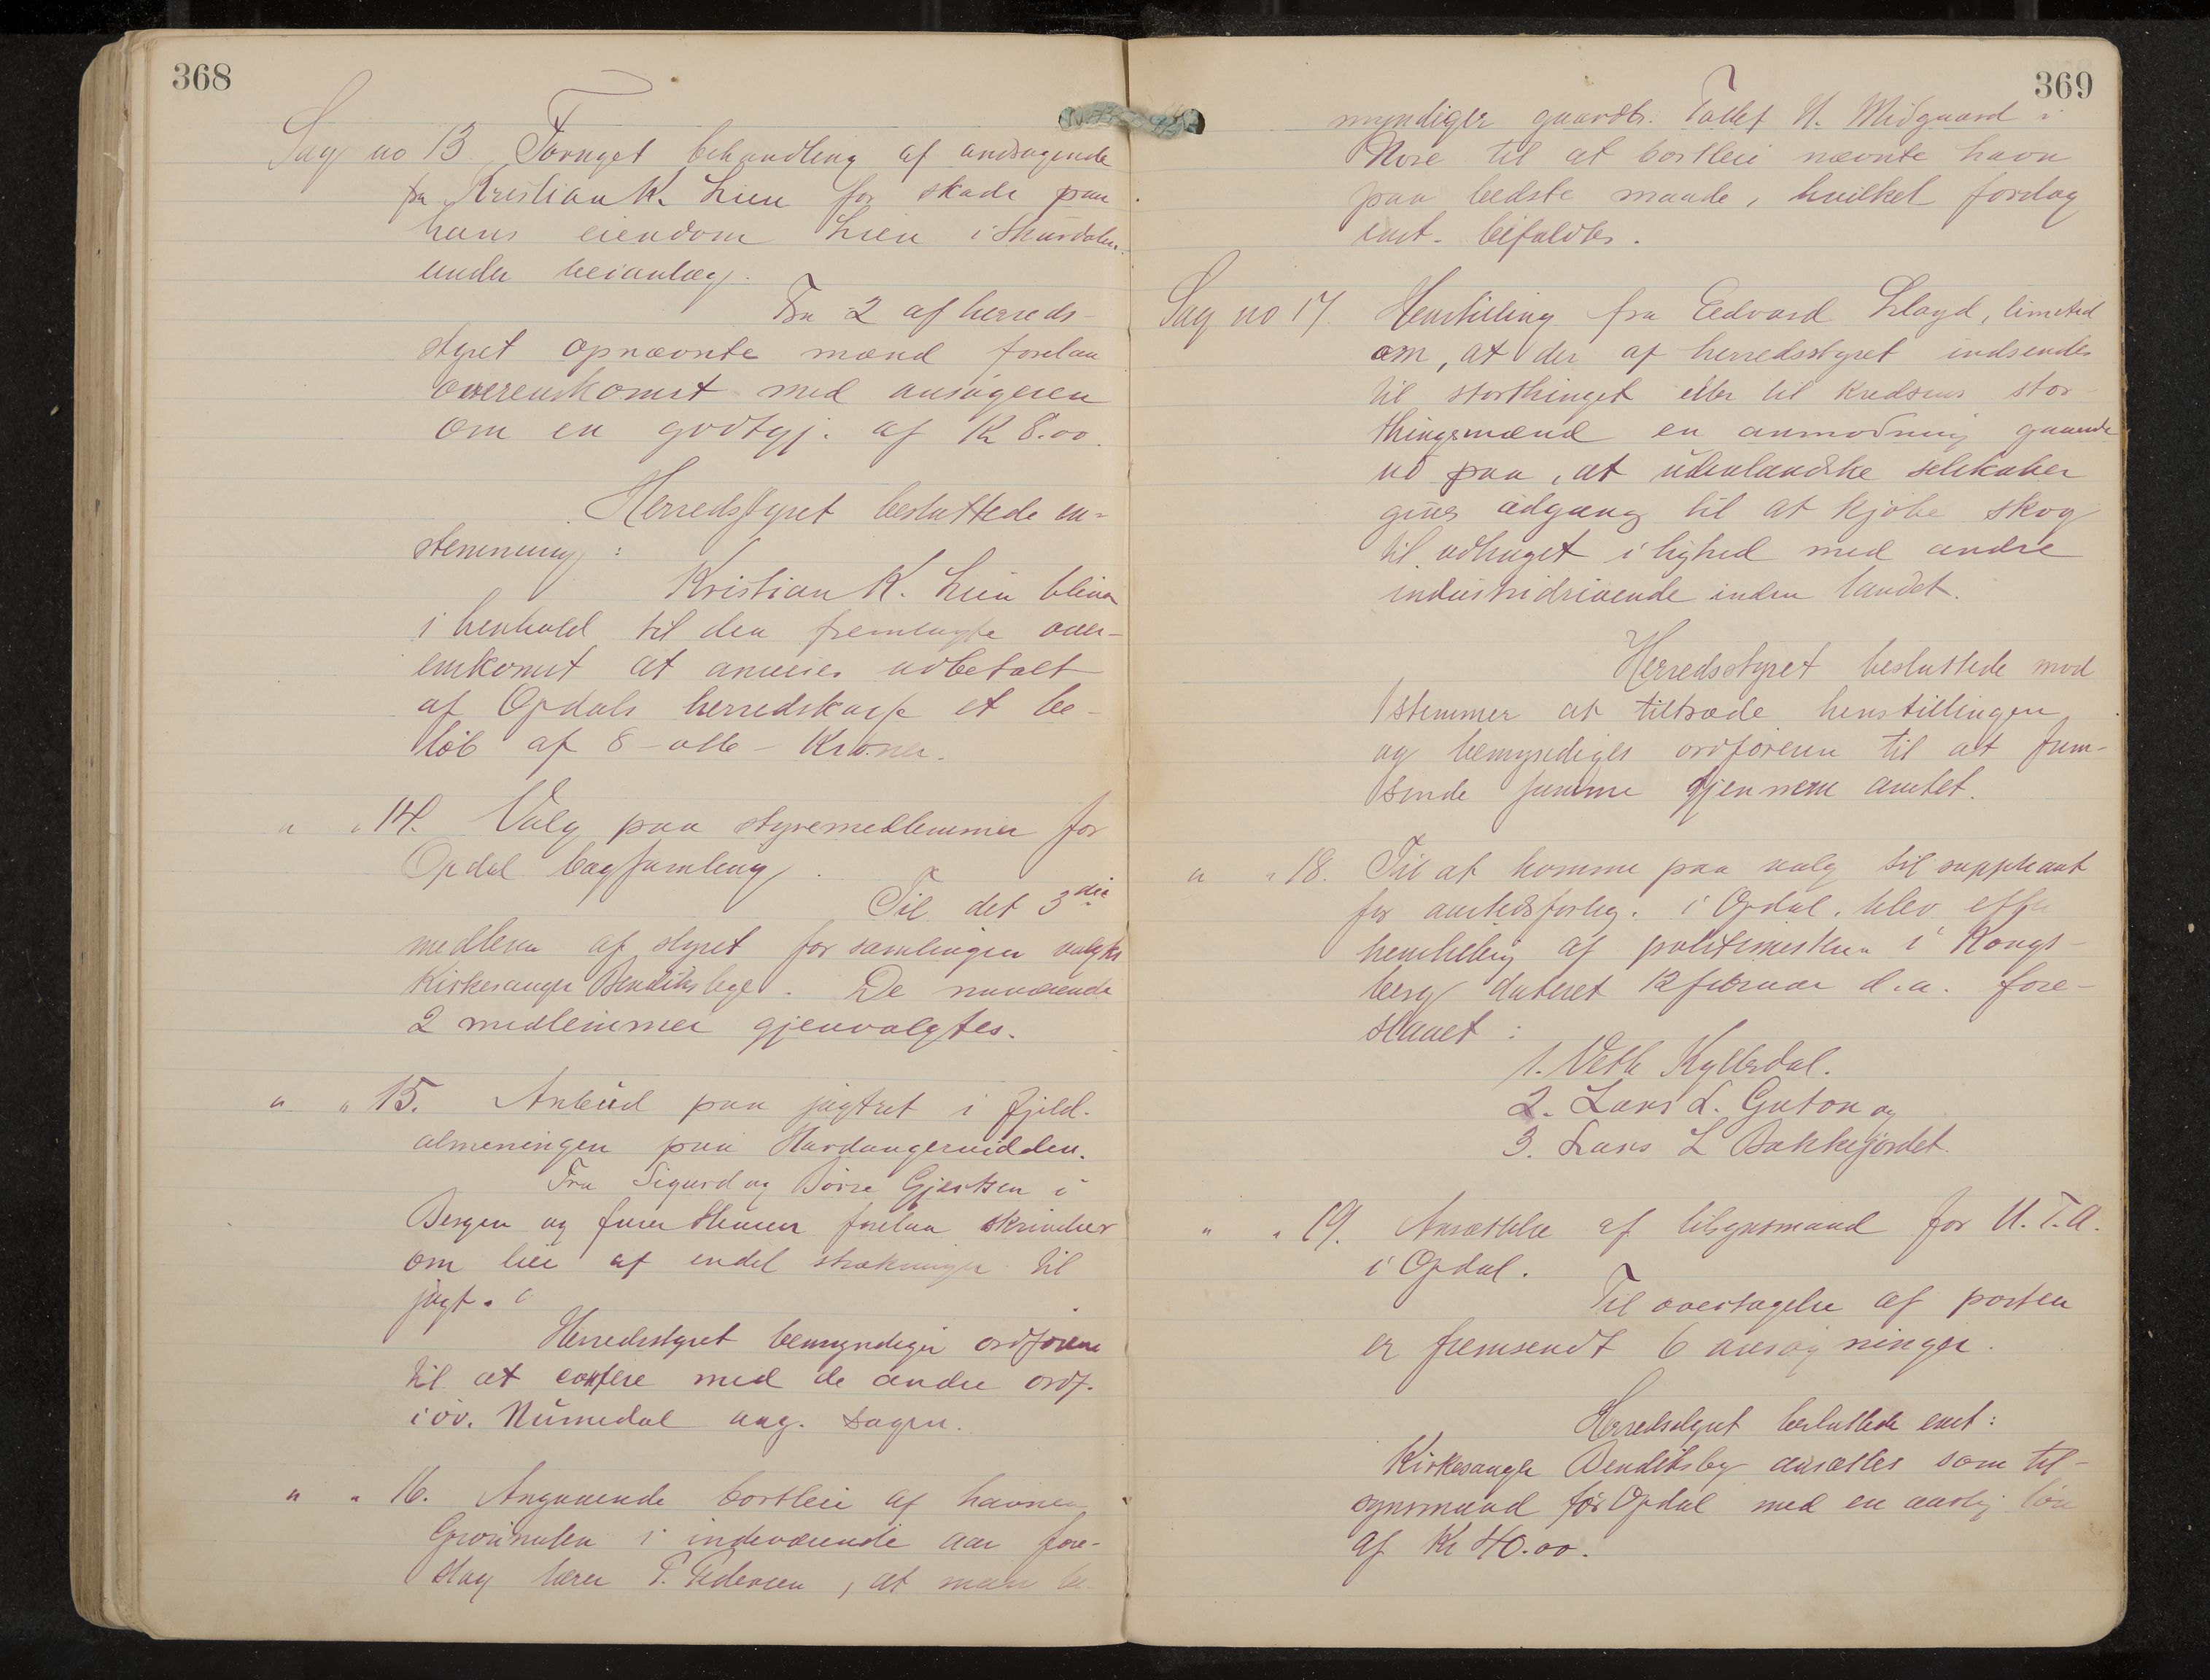 368
Sag no 13. Fornyet behandling af andragende
fra Kristian K. Lien for skade paa
hans eiendom Lien i Skurdalen
under veianlæg.
Fra 2 af herreds-
styret opnævnte mænd forelaa
overenskomst med ansøgeren
om en godtgj. af Kr 8.00.
Herredsstyret besluttede en-
stemmig:
Kristian K. Lien bliver
i henhold til den fremlagte over-
enskomst at anvise udbetalt
af Opdals herredskasse et be-
løb af 8 - otte - Kroner.
" " 14. Valg paa styremedlemmer for
Opdal bogsamling.
Til det 3die
medlem af styret for samlingen valgtes
Kirkesanger Bendiksby. De nuværende
2 medlemmer gjenvalgtes.
" " 15. Anbud paa jagtret i fjeld-
almeningen paa Hardangervidden.
Fra Sigurd og Børre Gjertsen i
Bergen og forelaa skrivelser
om leie af endel strækninger til
jagt.
Herredsstyret bemyndiger ordføreren
til at confere med de andre ordf.
i øv. Numedal ang. sagen.
" " 16. Angaaende bortleie af havnen
i indeværende aar fore-
slog lærer P. Pedersen, at man be-
369
myndiger gaardbr. Tollef H. Midgaard i
Nore til at bortleie nævnte havn
paa bedste maade, hvilket forslag
enst. bifaldtes.
Sag no 17. Henstilling fra Edvard Lloyd, limited
om, at der af herredsstyret indsendes
til storthinget eller til kredsens stor-
thingsmænd en anmodning gaaende
ud paa, at udenlandske selskaber
gives adgang til at kjøbe skog
til udhuget i lighed med andre
industridrivende inden landet.
Herredsstyret besluttede mod
1 stemmer at tiltræde henstillingen
og bemyndiges ordføreren til at frem-
sende samme gjennem amtet.
" " 18. Til at komme paa valg til suppleant
for amtets i Opdal, blev efter
henstilling af politimesteren i Kongs-
berg dateret 12 februar d.a. fore-
slaaet:
1. Vetle Kyllesdal.
2. Lars L. Guton og
3. Lars L Bakkejordet.
" " 19. Ansættelse af tilsynsmand for U.T.A.
i Opdal.
Til overtagelse af posten
er fremsendt 6 ansøgninger.
Herredsstyret besluttede enst:
Kirkesanger Bendiksby ansættes som til-
synsmand for Opdal med en aarlig løn
af Kr 40.00.